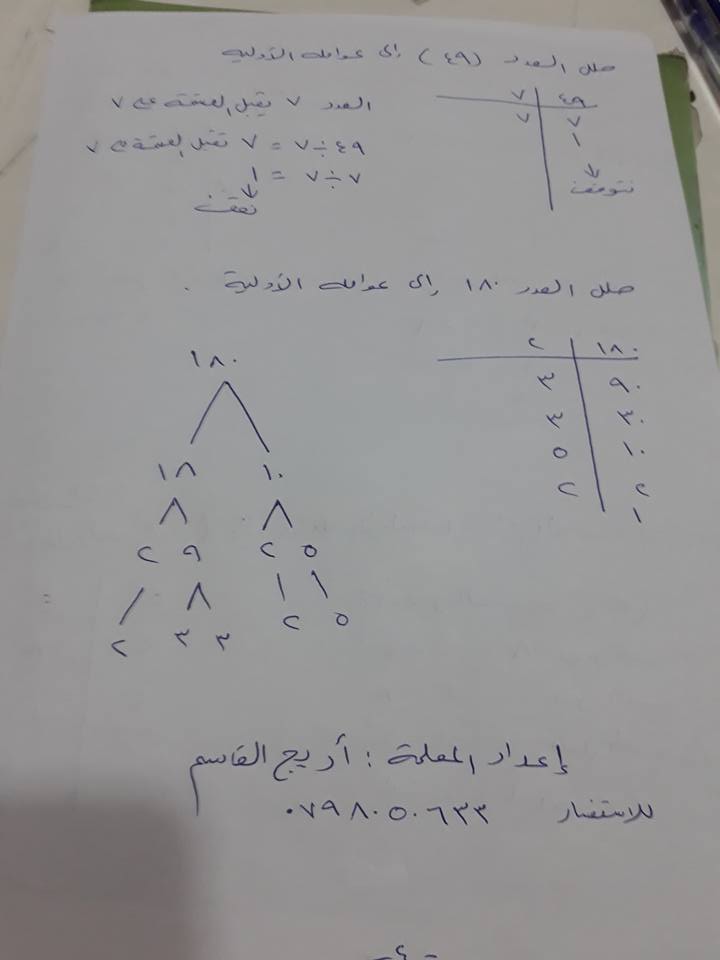 حلل العدد (٤٩) إلى عوامله الأولية
٤٩ | ٧
٧ | ٧
١
↓
نتوقف
العدد ٧ يقبل القسمة على ٧
٤٩ ÷ ٧ = ٧ تقبل القسمة على ٧
٧ ÷ ٧ = ١
↓
نقف
حلل العدد ١٨٠ إلى عوامله الأولية .
١٨٠ | ٢
٩٠ | ٣
٣٠ | ٣
١٠ | ٥
٢ | ٢
١
١٨٠
١٨ ١٠
٢ ٩ ٢ ٥
٢ ٣ ٣ ٢ ٥
إعداد المعلمة : أريج القاسم
للاستفسار ٠٧٩٨٠٥٠٦٣٣
- ٤ -